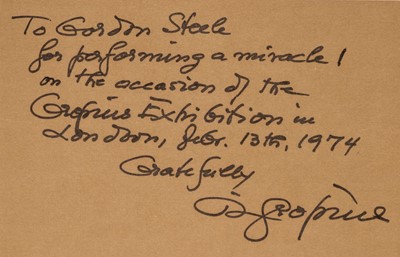 To Gordon Steele
for performing a miracle!
on the occasion of the
Gropius Exhibition in
London, Febr. 13th, 1974
Gratefully
I. Gropius